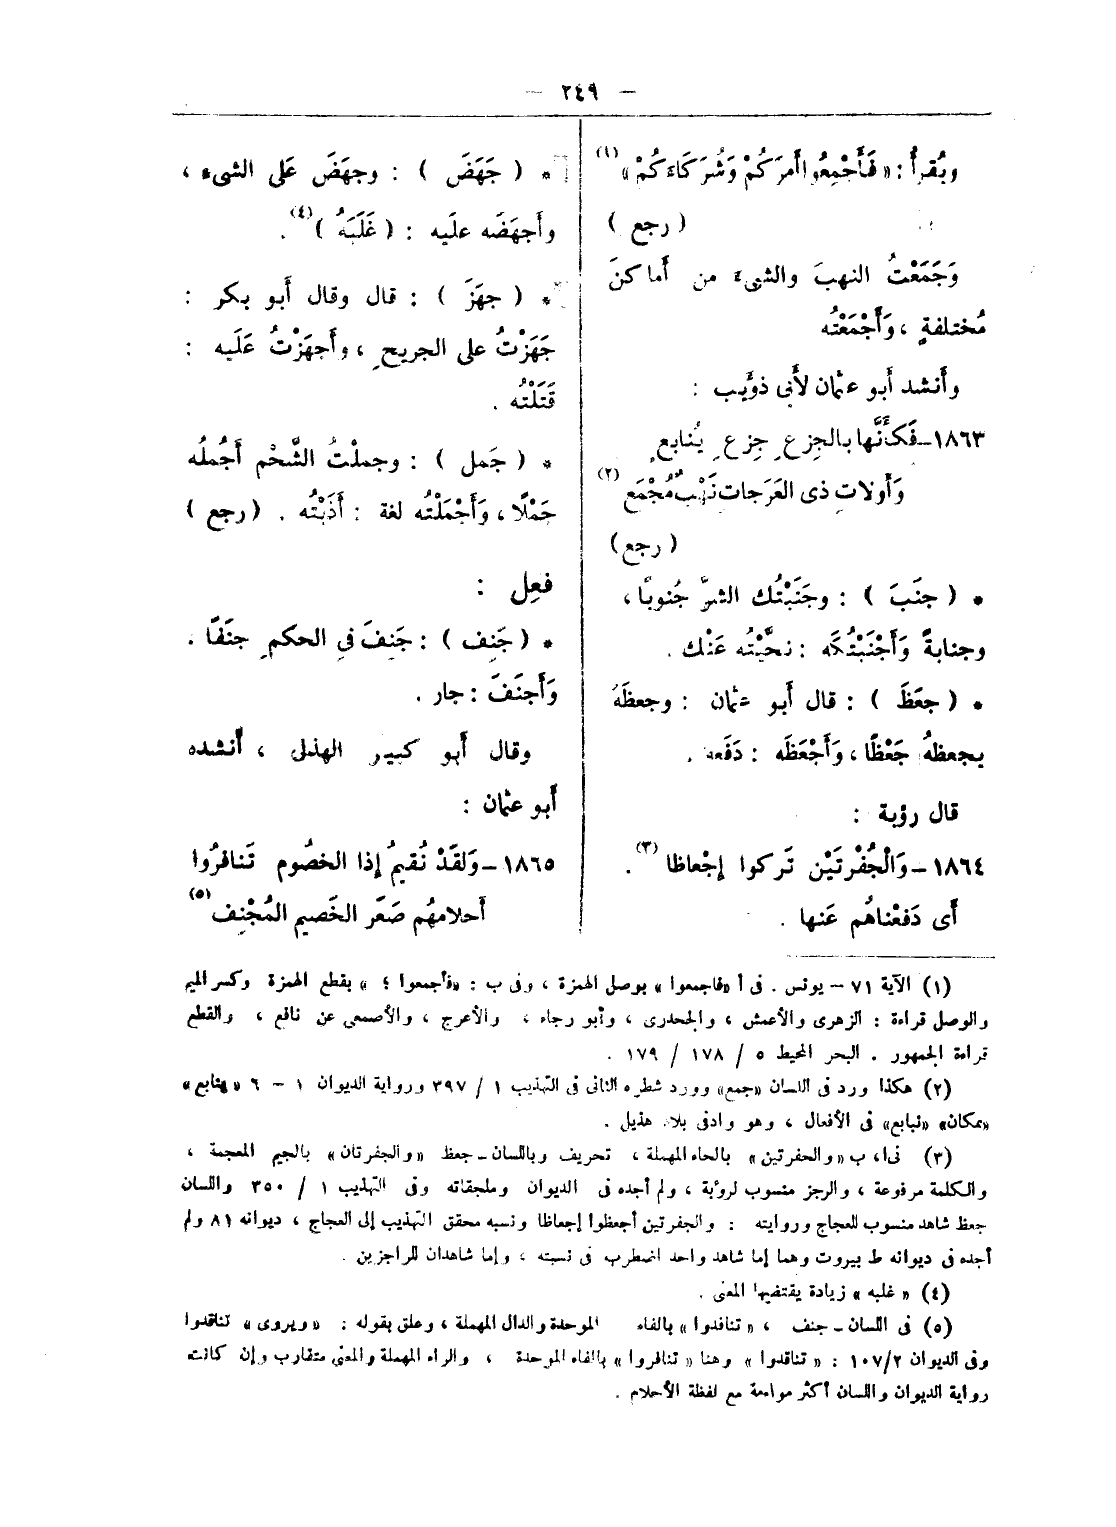 — ٢٤٩ —
ويُقرأُ : « فَأَجْمِعُوا أَمرَكُمْ وَشُرَكَاءَكُمْ » (١)
( رجع )
وَجَمَعْتُ النهبَ والشىءَ من أَماكنَ
مُختلفةٍ ، وَأَجْمَعْتُه
وأَنشد أَبو عثمان لأَبى ذوَّيب :
١٨٦٣ – فَكأَنَّها بالجِزعِ جِزعِ يُنابعٍ
وَأُولاتِ ذى العَرَجات نَهْبٌ مُجْمَع (٢)
( رجع )
* ( جنَبَ ) : وجَنَبْتُك الشرَّ جُنوبًا ،
وجنابةً وَأَجْنَبْتُكَه : نحَّيْتُه عَنْك .
* ( جعَظَ ) : قال أَبو عثمان : وجعظَهُ
يجعظهُ جَعْظًا ، وَأَجْعَظَه : دَفَعه .
قال رؤبة :
١٨٦٤ – وَالْجُفْرتَيْن تَركوا إجْعاظا (٣) .
أَى دَفعْناهُم عَنها .
* ( جَهَضَ ) : وجهَضَ عَلى الشىء ،
وأَجهَضَه علَيه : ( غَلَبَهُ ) (٤) .
* ( جهَزَ ) : قال وقال أَبو بكر :
جَهَزْتُ على الجريحِ ، وأَجهَزْتُ عَلَيه :
قَتَلْتُه .
* ( جَمل ) : وجملْتُ الشَّحْم أَجُملُه
جَمْلًا ، وَأَجْمَلْتُه لغة : أَذَبْتُه . ( رجع )
فعِل :
* ( جَنِف ) : جَنِفَ فى الحكمِ جنَفًا .
وَأَجنَفَ : جار .
وقال أَبو كبير الهذلى ، أَنشده
أَبو عثمان :
١٨٦٥ – وَلقَدْ نُقيمُ إذا الخصُوم تَنافرُوا
أَحلامهُم صَعَر الخَصيمِ المُجْنِف (٥)
(١) الآية ٧١ – يونس . فى أ «فاجمعوا» بوصل الهمزة ، وفى ب : «فأجمعوا ؛ » بقطع الهمزة وكسر الميم
والوصل قراءة : الزهرى والأعمش ، والجحدرى ، وأبو رجاء ، والأعرج ، والأصمعى عن نافع ، والقطع
قراءة الجمهور . البحر المحيط ٥ / ١٧٨ / ١٧٩ .
(٢) هكذا ورد فى اللسان «جمع» وورد شطره الثانى فى التهذيب ١ / ٣٩٧ ورواية الديوان ١ – ٦ «ينابع»
«مكان» «نبايع» فى الأفعال ، وهو وادفى بلاد هذيل .
(٣) فى ا، ب «والحفرتين» بالحاء المهملة ، تحريف وباللسان – جعظ «والجفرتان» بالجيم المعجمة ،
والكلمة مرفوعة ، والرجز منسوب لرؤبة ، ولم أجده فى الديوان وملحقاته وفى التهذيب ١ / ٣٥٠ واللسان
جعظ شاهد منسوب للعجاج وروايته : والجفرتين أجعظوا إجعاظا ونسبه محقق التهذيب إلى العجاج ، ديوانه ٨١ ولم
أجده فى ديوانه ط بيروت وهما إما شاهد واحد اضطرب فى نسبته ، وإما شاهدان للراجزين .
(٤) « غلبه » زيادة يقتضيها المعنى .
(٥) فى اللسان – جنف ، « تنافدوا » بالفاء الموحدة والدال المهملة ، وعلق بقوله : « ويروى » تناقدوا
وفى الديوان ١٠٧/٢ : « تناقدوا » وهنا « تنافروا » بالفاء الموحدة ، والراء المهملة والمعنى متقارب وإن كانت
رواية الديوان واللسان أكثر مواءمة مع لفظة الأحلام .